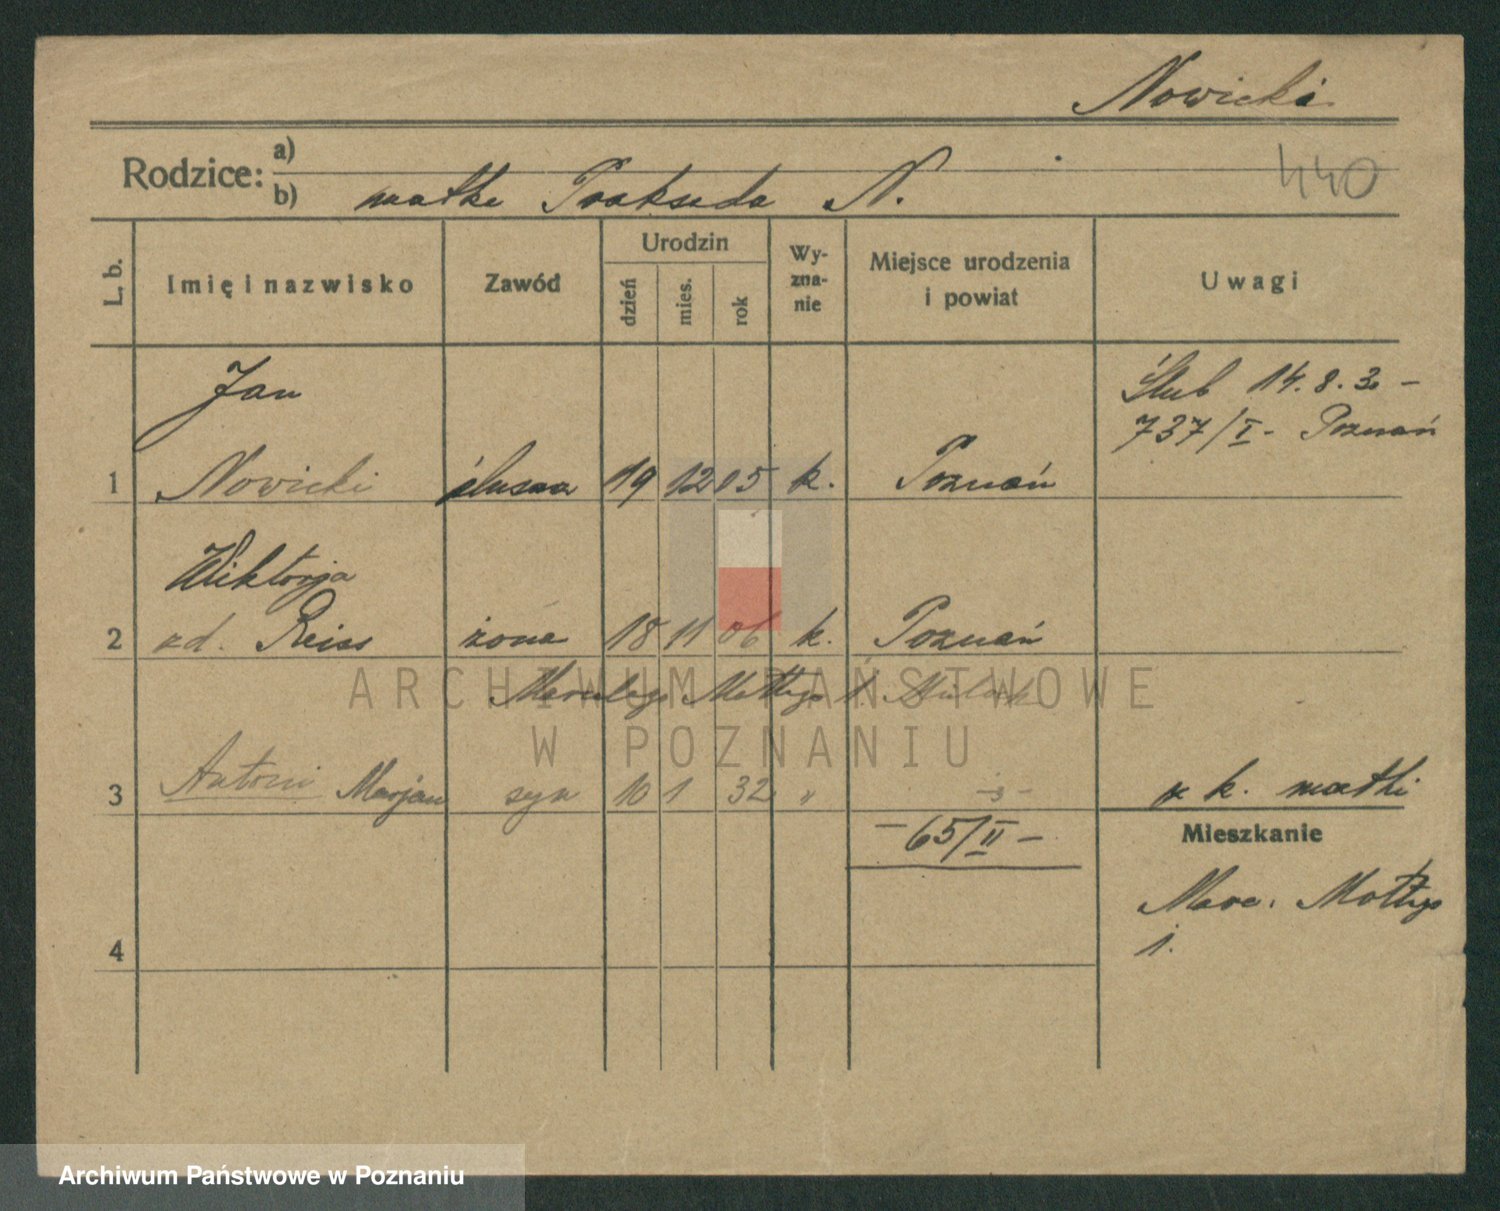 Nowicki
Rodzice: a)
440
b) matka Prakseda N.
L. b.
Imię i nazwisko
Zawód
Urodzin
dzień
mies.
rok
Wy-
zna-
nie
Miejsce urodzenia
i powiat
Uwagi
Jan
Ślub 14.8.30 -
737/I - Poznań
1 Nowicki ślusarz 19 12 05 k. Poznań
Wiktorja
2 zd. Reiss żona 18 11 06 k. Poznań
ARCHIWUM PAŃSTWOWE
Marcelego Mottego
W POZNANIU
3 Antoni Marjan syn 10 1 32 "
z k. matki
- 65/II -
Mieszkanie
Marc. Mottego
4
1.
Archiwum Państwowe w Poznaniu